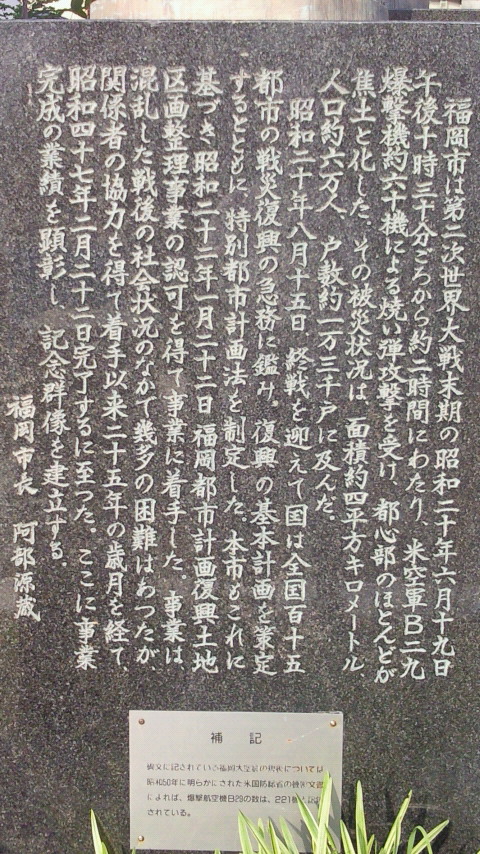 福岡市は第二次世界大戦末期の昭和二十年六月十九日
午後十時三十分ごろから約二時間にわたり、米空軍B二九
爆撃機約六十機による焼い弾攻撃を受け、都心部のほとんどが
焦土と化した。その被災状況は、面積約四平方キロメートル、
人口約六万人、戸数約一万三千戸に及んだ。
昭和二十年八月十五日 終戦を迎えて国は全国百十五
都市の戦災復興の急務に鑑み、復興の基本計画を策定
するとともに、特別都市計画法を制定した。本市もこれに
基づき昭和二十二年一月二十二日 福岡都市計画復興土地
区画整理事業の認可を得て事業に着手した。事業は、
混乱した戦後の社会状況のなかで幾多の困難はあつたが、
関係者の協力を得て着手以来二十五年の歳月を経て、
昭和四十七年二月二十二日完了するに至つた。ここに事業
完成の業績を顕彰し 記念群像を建立する。
福岡市長 阿部源蔵
補記
碑文に記されている福岡大空襲の戦術については
昭和50年に明らかにされた米国防総省の機密文書
によれば、爆撃航空機B29の数は、221機
されている。